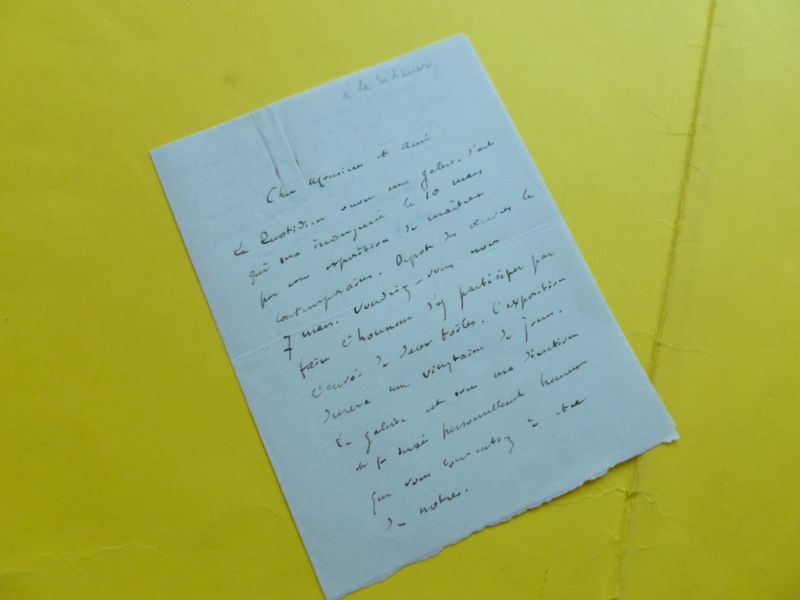 à Le Sidaner
Cher Monsieur et ami
Le Quotidien ouvre une galerie d'art
qui sera inaugurée le 10 mars
par une exposition de maîtres
contemporains. Dépôt des œuvres le
7 mars. Voudriez-vous nous
faire l'honneur d'y participer par
l'envoi de deux toiles. L'exposition
durera une vingtaine de jours.
La galerie est sous ma direction
et je serais personnellement heureux
que vous consentiez à être
des nôtres.